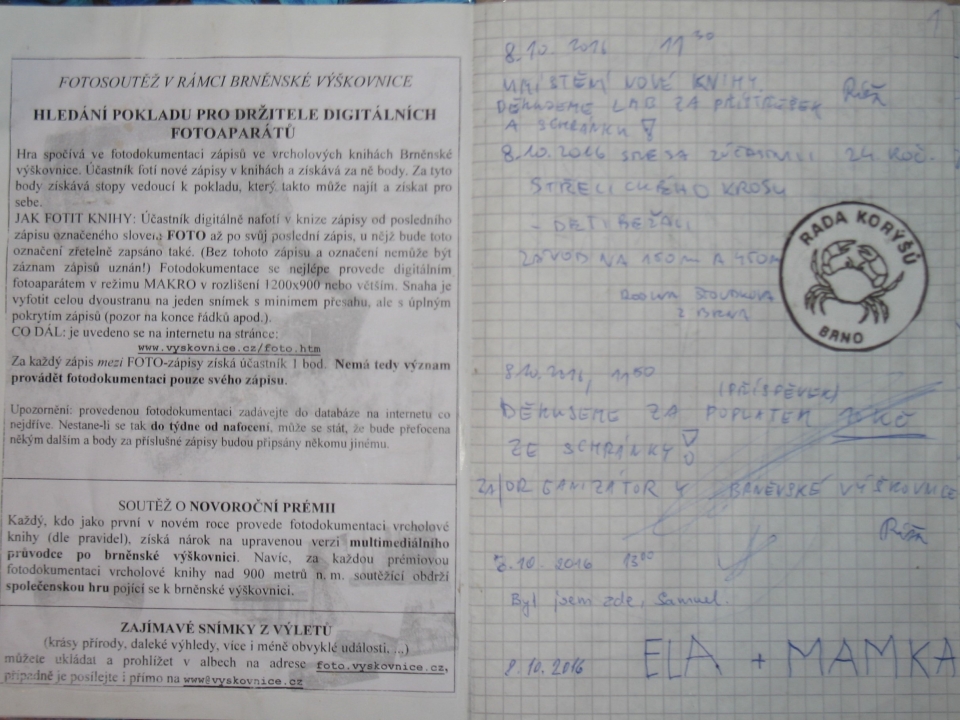 FOTOSOUTĚŽ V RÁMCI BRNĚNSKÉ VÝŠKOVNICE
HLEDÁNÍ POKLADU PRO DRŽITELE DIGITÁLNÍCH
FOTOAPARÁTŮ
Hra spočívá ve fotodokumentaci zápisů ve vrcholových knihách Brněnské
výškovnice. Účastník fotí nové zápisy v knihách a získává za ně body. Za tyto
body získává stopy vedoucí k pokladu, který takto může najít a získat pro
sebe.
JAK FOTIT KNIHY: Účastník digitálně nafotí v knize zápisy od posledního
zápisu označeného slovem FOTO až po svůj poslední zápis, u nějž bude toto
označení zřetelně zapsáno také. (Bez tohoto zápisu a označení nemůže být
záznam zápisů uznán!) Fotodokumentace se nejlépe provede digitálním
fotoaparátem v režimu MAKRO v rozlišení 1200x900 nebo větším. Snaha je
vyfotit celou dvoustranu na jeden snímek s minimem přesahu, ale s úplným
pokrytím zápisů (pozor na konce řádků apod.).
CO DÁL: je uvedeno se na internetu na stránce:
www.vyskovnice.cz/foto.htm
Za každý zápis mezi FOTO-zápisy získá účastník 1 bod. Nemá tedy význam
provádět fotodokumentaci pouze svého zápisu.
Upozornění: provedenou fotodokumentaci zadávejte do databáze na internetu co
nejdříve. Nestane-li se tak do týdne od nafocení, může se stát, že bude přefocena
někým dalším a body za příslušné zápisy budou připsány někomu jinému.
SOUTĚŽ O NOVOROČNÍ PRÉMII
Každý, kdo jako první v novém roce provede fotodokumentaci vrcholové
knihy (dle pravidel), získá nárok na upravenou verzi multimediálního
průvodce po brněnské výškovnici. Navíc, za každou prémiovou
fotodokumentaci vrcholové knihy nad 900 metrů n. m. soutěžící obdrží
společenskou hru pojící se k brněnské výškovnici.
ZAJÍMAVÉ SNÍMKY Z VÝLETŮ
(krásy přírody, daleké výhledy, více i méně obvyklé události, ...)
můžete ukládat a prohlížet v albech na adrese foto.vyskovnice.cz,
případně je posílejte i přímo na www@vyskovnice.cz
1
8.10. 2016 11 30
UMÍSTĚNÍ NOVÉ KNIHY
DĚKUJEME LAB ZA PŘÍSTŘEŠEK
A SCHRÁNKU
8.10.2016 24 ROČ.
STŘELICKÉHO KROSU
- DĚTI BĚŽALI
ZÁVOD NA 150M A 450M
RODINA
Z BRNA
RADA KORÝŠŮ
BRNO
8.10.2016, 11 50
(PŘÍSPĚVEK)
DĚKUJEME ZA POPLATEK KČ
ZE SCHRÁNKY
ZA/ORGANIZÁTORY BRNĚNSKÉ VÝŠKOVNICE
8.10. 2016 13
Byl jsem zde, Samuel.
8.10.2016 ELA + MAMKA